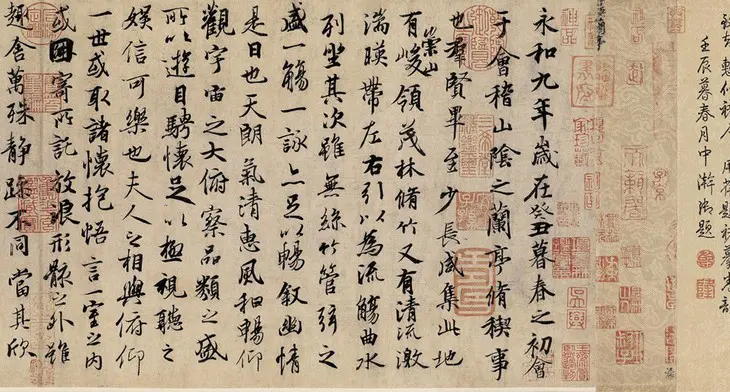 壬辰暮春月中澣御題
永和九年歲在癸丑暮春之初會
于會稽山陰之蘭亭脩稧事
也羣賢畢至少長咸集此地
有崇山峻領茂林脩竹又有清流激
湍暎帶左右引以為流觴曲水
列坐其次雖無絲竹管弦之
盛一觴一詠亦足以暢叙幽情
是日也天朗氣清惠風和暢仰
觀宇宙之大俯察品類之盛
所以遊目騁懷足以極視聽之
娛信可樂也夫人之相與俯仰
一世或取諸懷抱悟言一室之內
或因寄所託放浪形骸之外雖
趣舍萬殊靜躁不同當其欣